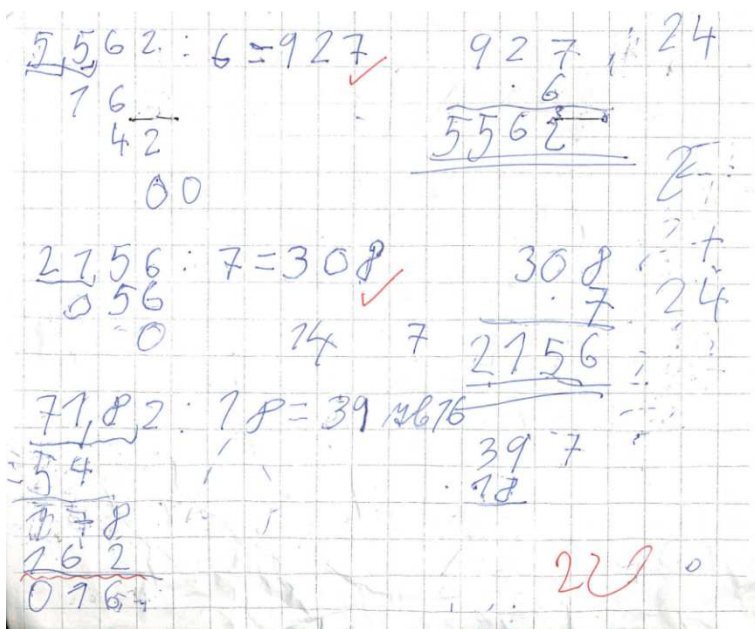 5562 : 6 = 927
16
42
00
927
· 6
5562
24
2156 : 7 = 308
056
0
14 7
308
· 7
2156
+
24
7182 : 18 = 39
54
178
162
016
397
18